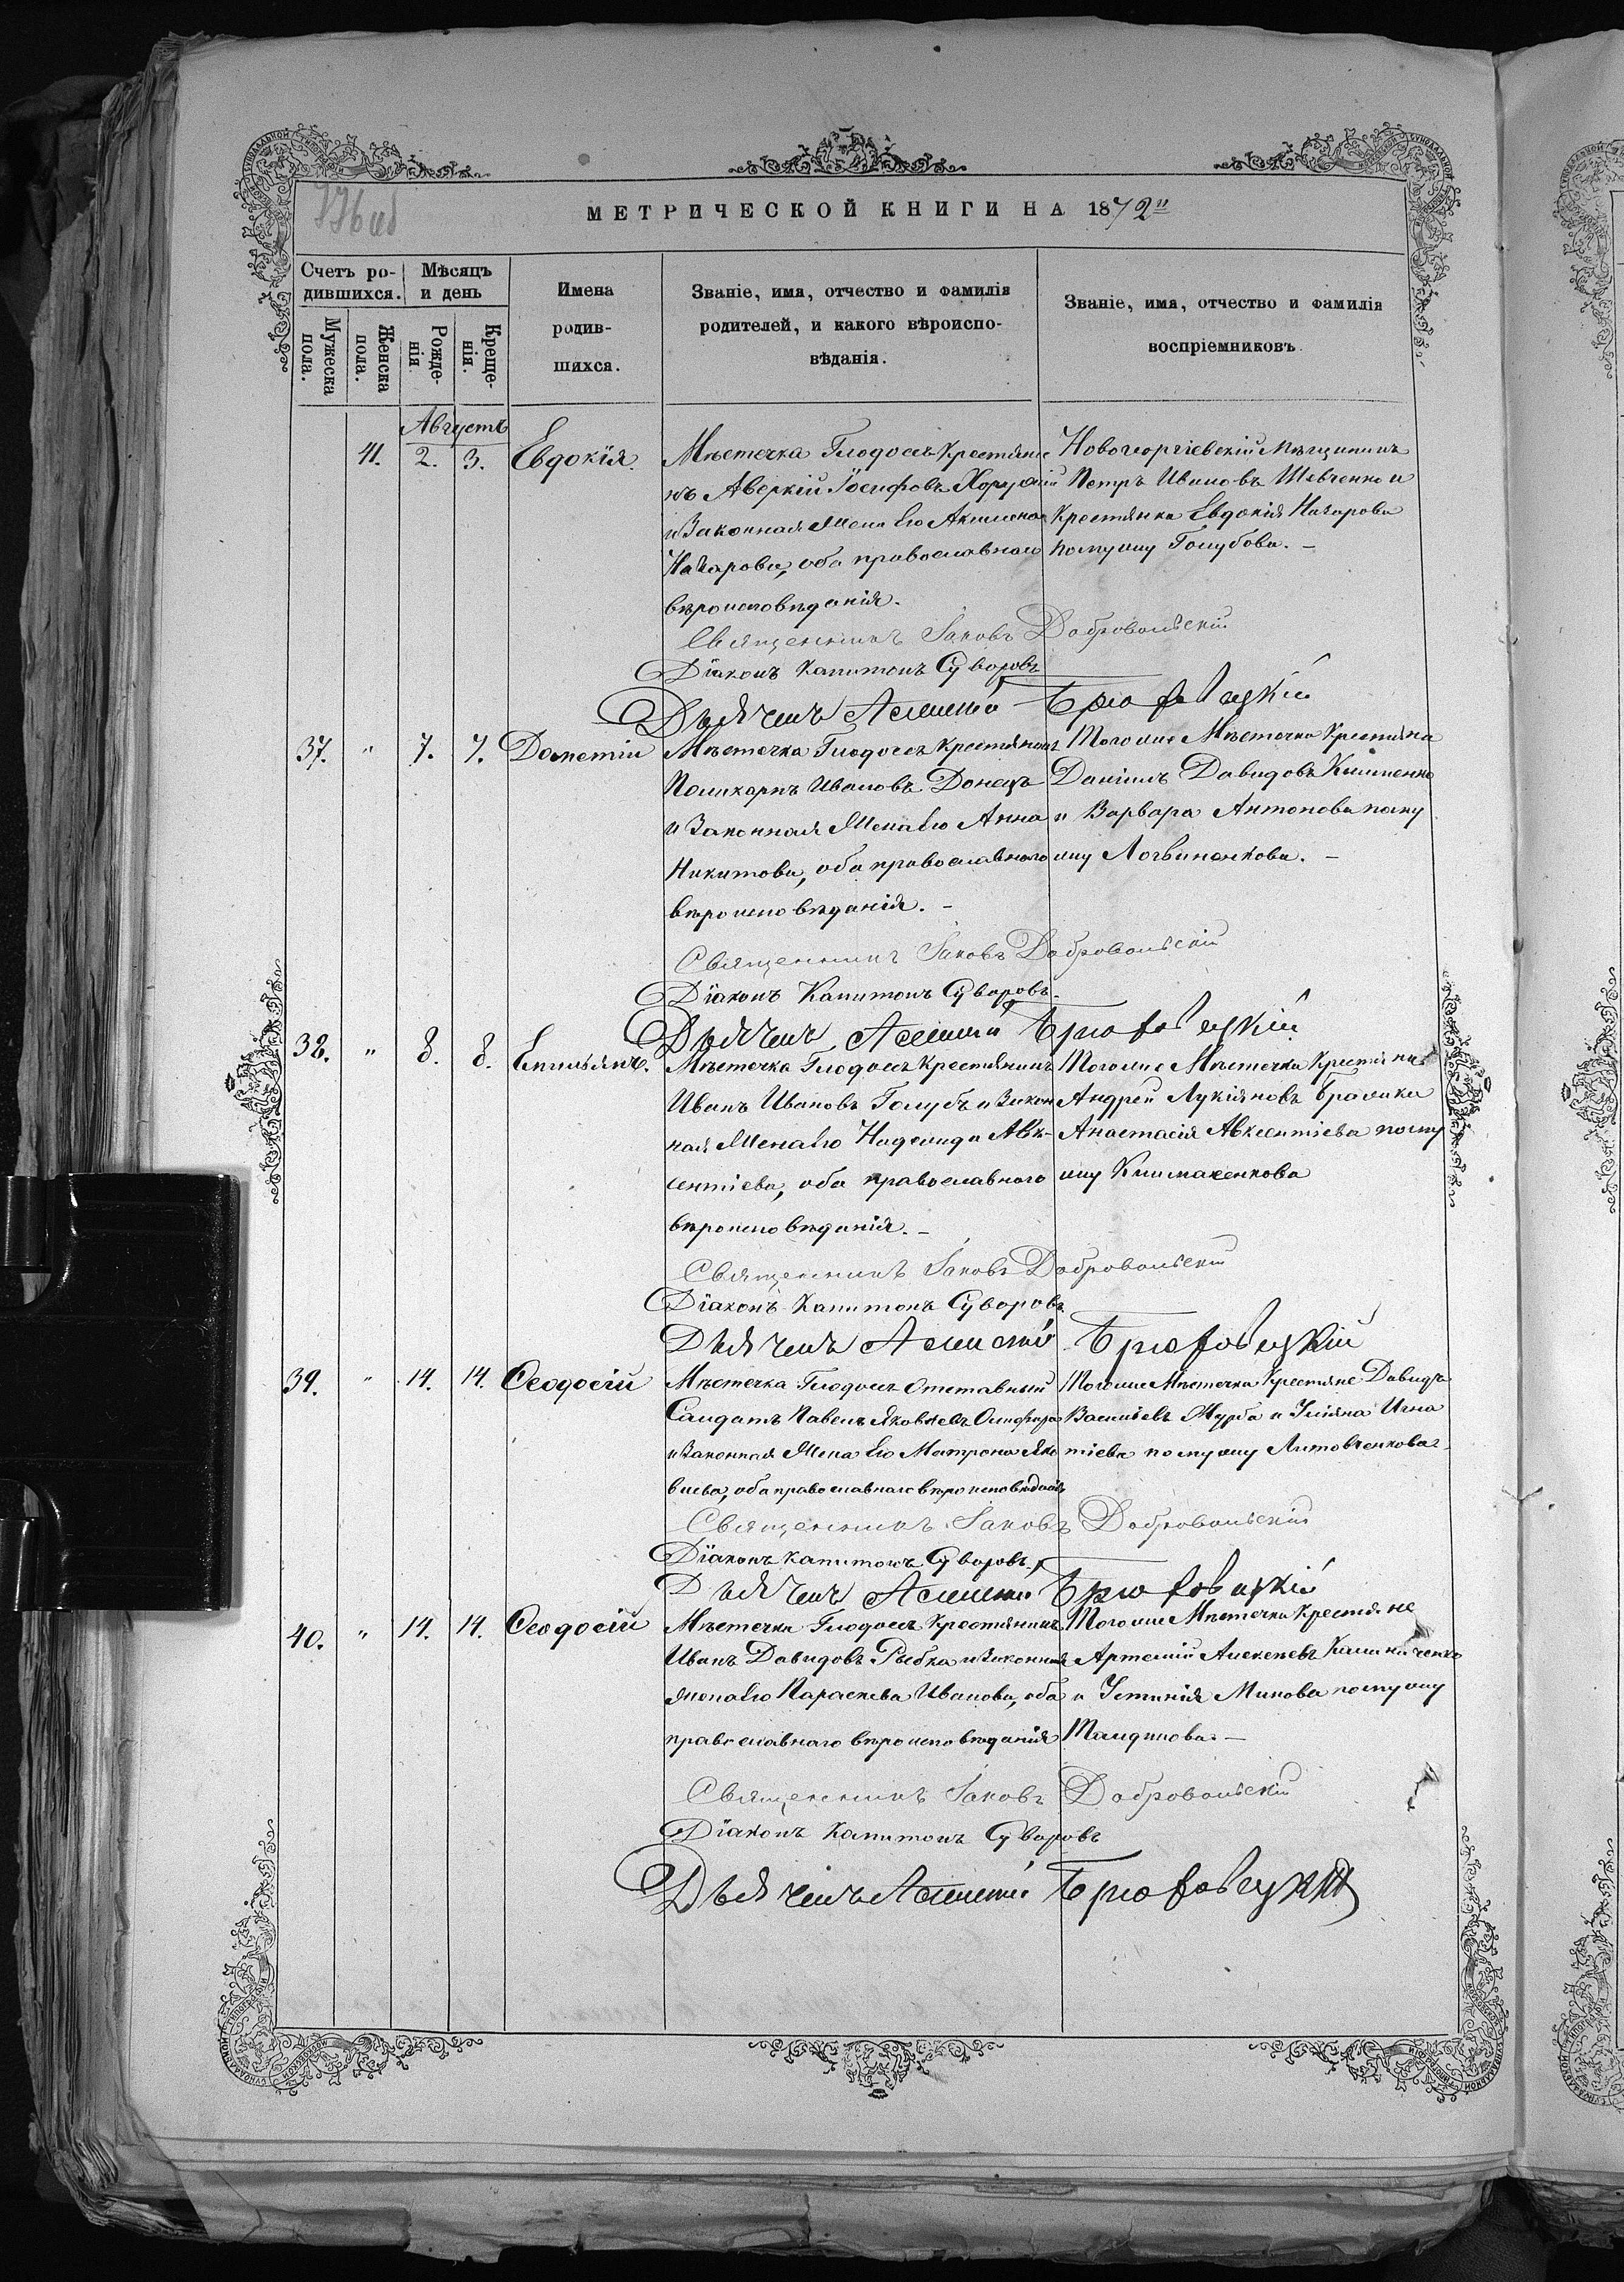 МЕТРИЧЕСКОЙ КНИГИ НА 1872
Счетъ ро-
дившихся.
Мѣсяцъ
и день
Имена
родив-
шихся.
Званіе, имя, отчество и фамилія
родителей, и какого вѣроиспо-
вѣданія.
Званіе, имя, отчество и фамилія
воспріемниковъ
Мужеска
пола.
Женска
пола.
Рожде-
нія
Креще-
нія.
Августъ
41. 2. 3. Евдокія.
Мѣстечка Глодосъ Крестьяни
нъ Аверкій Іосифовъ
и Законная Жена Его Акилина
Назарова, оба православнаго
вѣроисповѣданія.
Новогеоргіевскій мѣщанинъ
Петръ Ивановъ Шевченко и
Крестьянка Евдокія Назарова
по мужу Голубова. –
Священникъ Іаковъ Добровольскій
Діаконъ Капитонъ Суворовъ
Дьячекъ Алексій Брюховецкій
37. " 7. 7. Дометій
Мѣстечка Глодосъ Крестьянинъ
Поликарпъ Ивановъ Донецъ
и Законная Жена Его Анна
Никитова, оба православнаго
вѣроисповѣданія. –
Того же Мѣстечка Крестьяне
Даніилъ Давидовъ
и Варвара Антонова по му
жу Логвиненкова. –
Священникъ Іаковъ Добровольскій
Діаконъ Капитонъ Суворовъ.
Дьячекъ Алексій Брюховецкій
38. " 8. 8. Емиліянъ.
Мѣстечка Глодосъ Крестьянинъ
Иванъ Ивановъ Голубъ и Закон
ная Жена Его Надежда Авк-
сентіева, оба православнаго
вѣроисповѣданія. –
Того же Мѣстечка Крестьяне
Андрей Лукіяновъ
Анастасія Авксентіева по му
жу
Священникъ Іаковъ Добровольскій
Діаконъ Капитонъ Суворовъ
Дьячекъ Алексій Брюховецкій
39. " 14. 14. Ѳеодосій
Мѣстечка Глодосъ Отставный
Солдатъ Павелъ Яковлевъ
и Законная Жена Его Матрона Яко
влева, оба православнаго вѣроисповѣданія
Того же Мѣстечка Крестьяне Давидъ
Васильевъ Журба и Уліяна Игна
тіева по мужу Литовченкова
Священникъ Іаковъ Добровольскій
Діаконъ Капитонъ Суворовъ
Дьячекъ Алексій Брюховецкій
40. " 14. 14. Ѳеодосій
Мѣстечка Глодосъ Крестьянинъ
Иванъ Давидовъ Рыбка и Законная
жена Его Параскева Иванова, оба
православнаго вѣроисповѣданія
Того же Мѣстечка Крестьяне
Артемій Алексѣевъ Калиниченко
и Устинія Минова по мужу
Священникъ Іаковъ Добровольскій
Діаконъ Капитонъ Суворовъ
Дьячекъ Алексій Брюховецкій